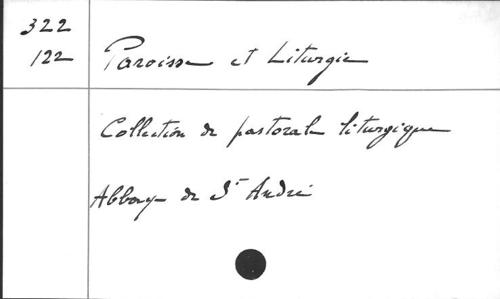 322
122
Paroisse et Liturgie
Collection de pastorale liturgique
Abbaye de St André